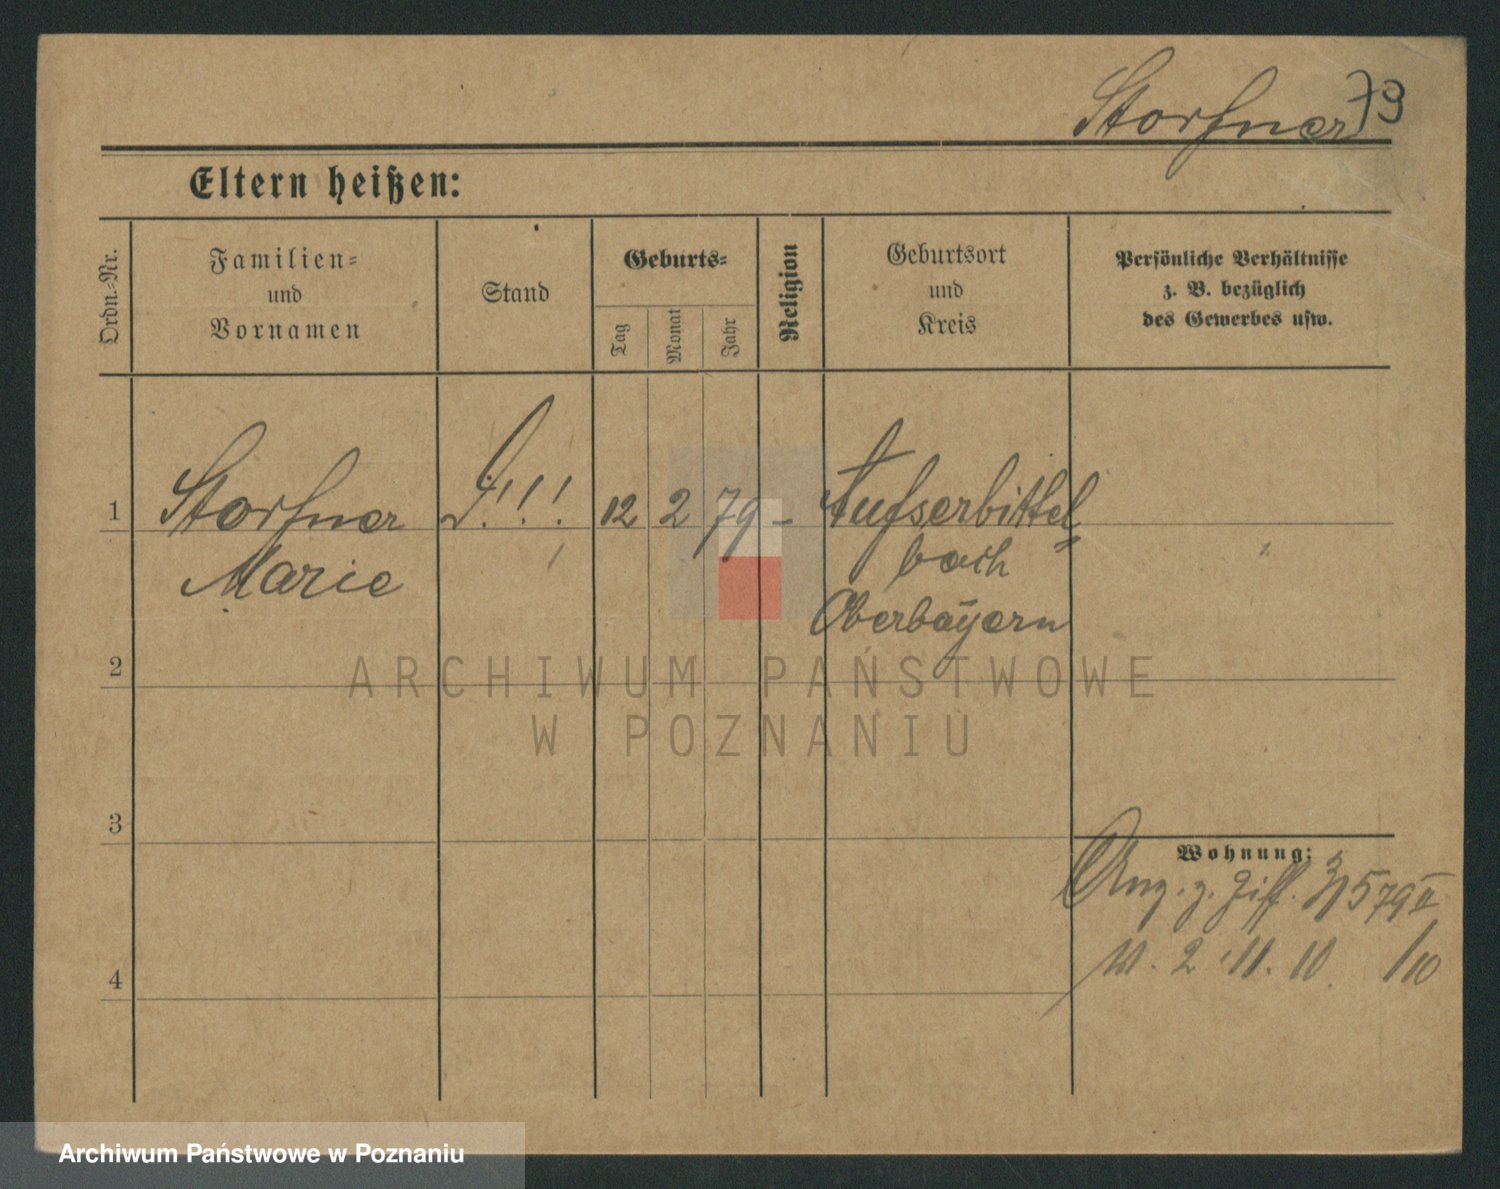 Storfner 79
Eltern heißen:
Ordn.-Nr.
Familien-
und
Vornamen
Stand
Geburts-
Tag
Monat
Jahr
Religion
Geburtsort
und
Kreis
Persönliche Verhältnisse
z. B. bezüglich
des Gewerbes usw.
1 Storfner !!! 12 2 79 -
Marie
bach
Oberbayern
2
3
4
Wohnung:
Anz. z. Ziff. 579 II
2. 11. 10 /10
ARCHIWUM PAŃSTWOWE
W POZNANIU
Archiwum Państwowe w Poznaniu